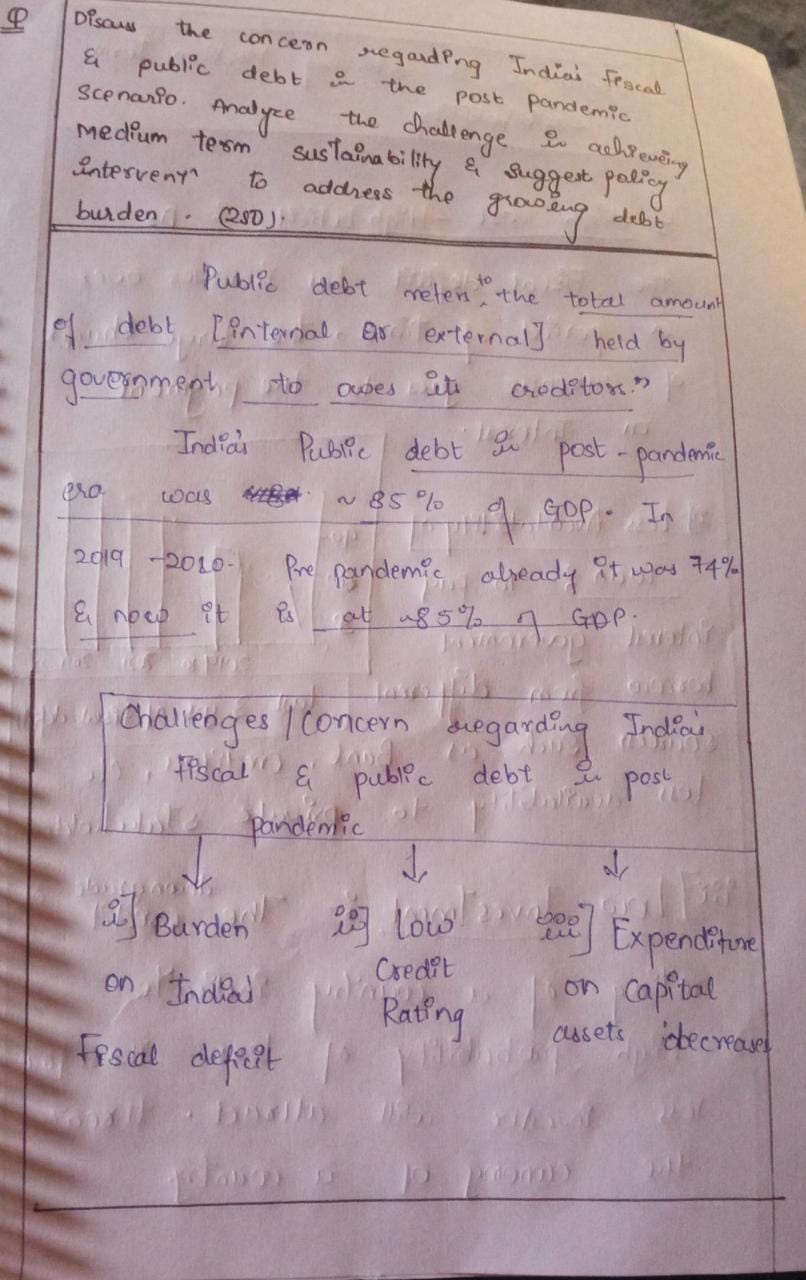 Q
Discuss the concern regarding India's fiscal
& public debt in the post pandemic
scenario. Analyze the challenge in achieveing
medium term sustainability & suggest policy
intervenⁿ to address the growing debt
burden. (250).
Public debt refers to the total amount
of debt [internal or external] held by
government to owes its creditors."
India's Public debt in post-pandemic
era was ~85% of GDP. In
2019-2020. Pre pandemic already it was 74%
& now it is at ~85% of GDP.
Challenges / Concern regarding India's
fiscal & public debt in post
pandemic
i] Burden on India's Fiscal deficit
ii] Low Credit Rating
iii] Expenditure on capital assets decreases